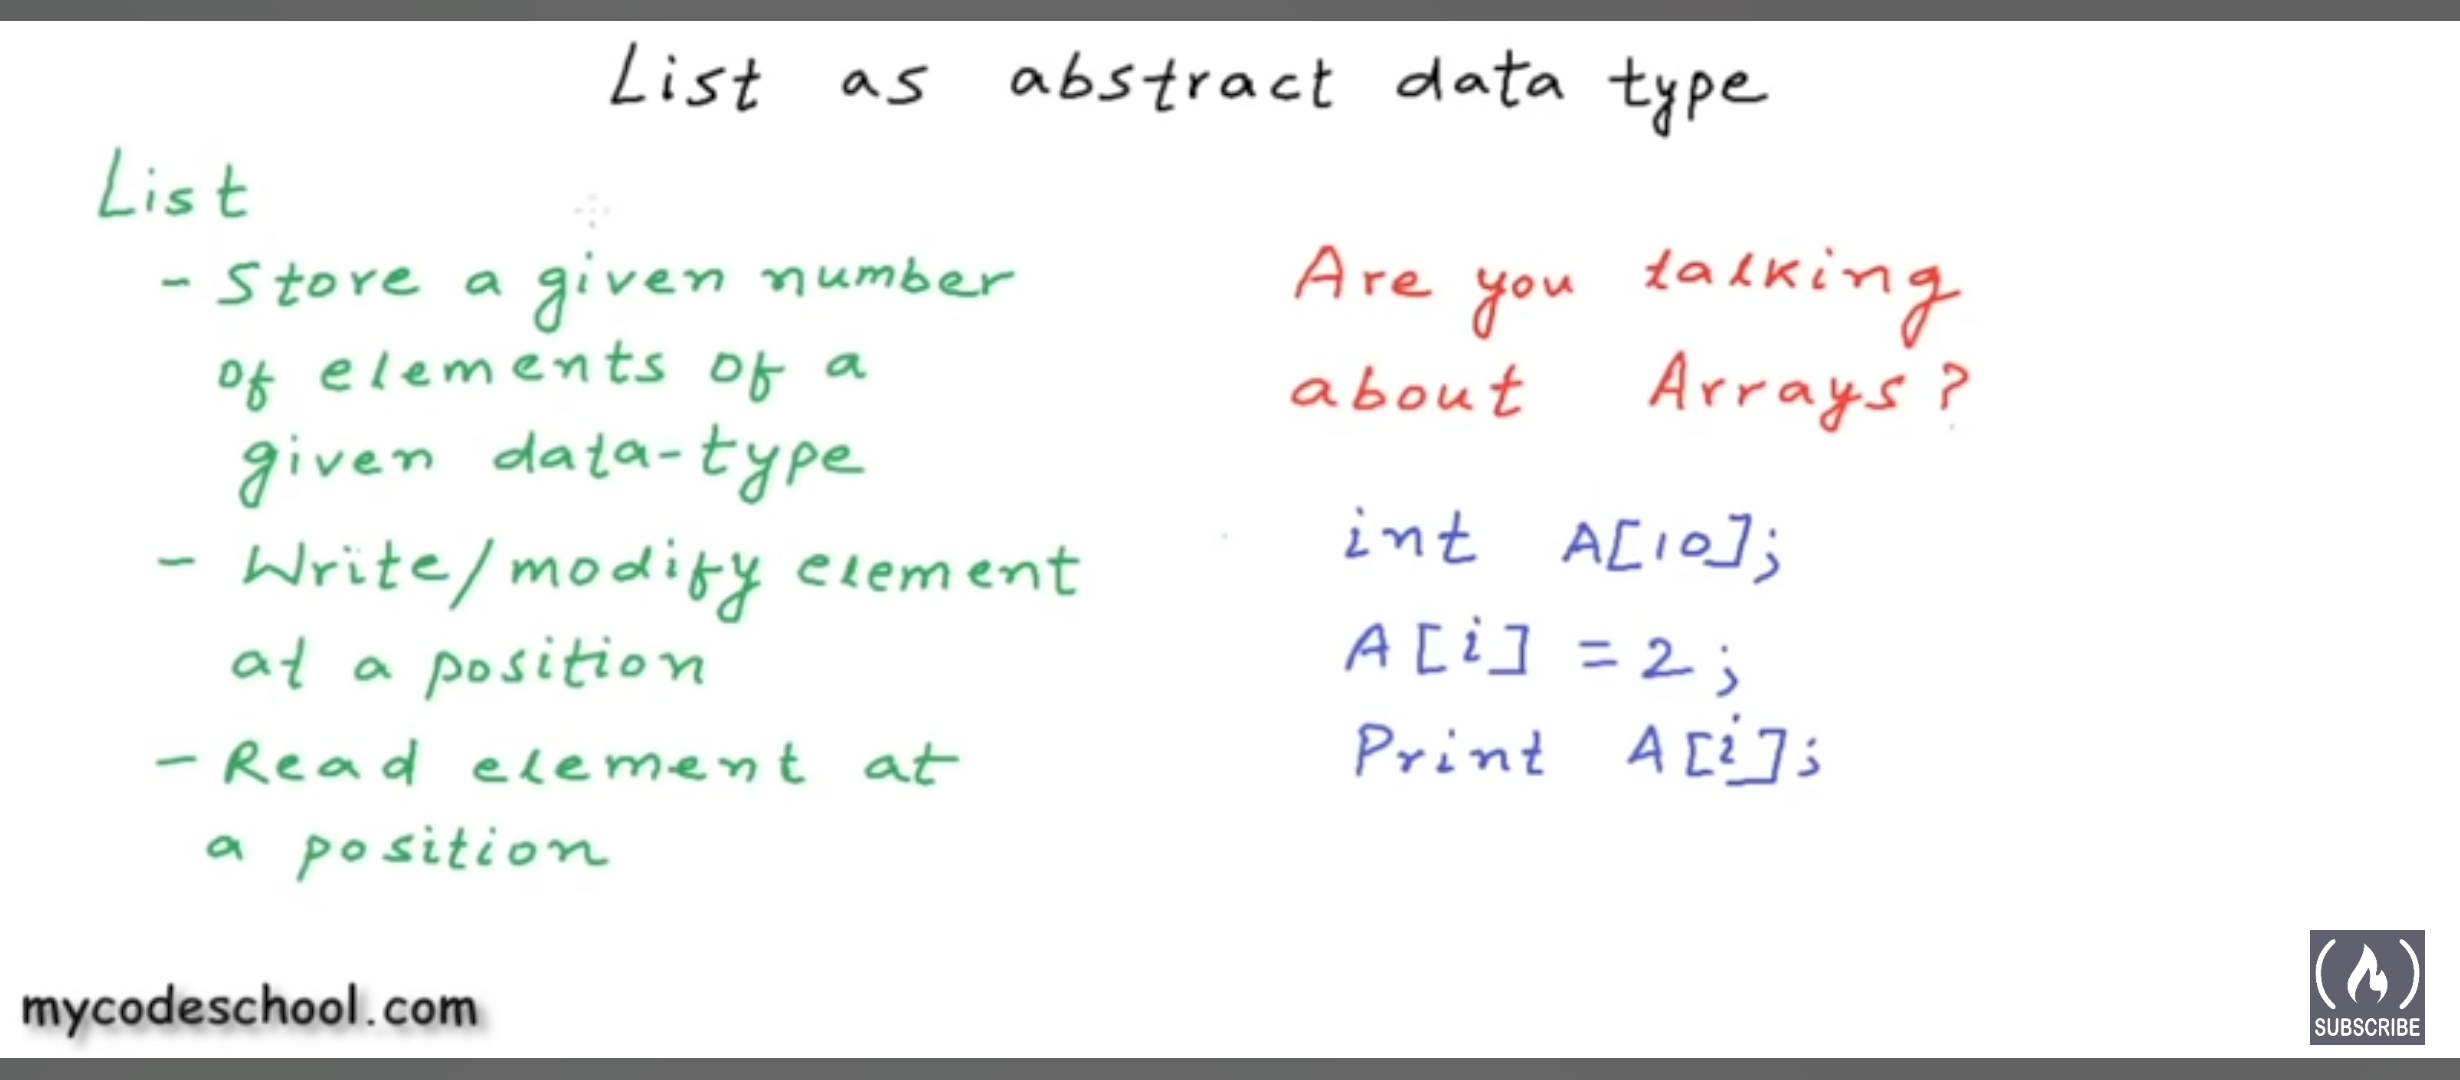 List as abstract data type
List
- Store a given number
of elements of a
given data-type
- Write/modify element
at a position
- Read element at
a position
Are you talking
about Arrays?
int A[10];
A[i] = 2;
Print A[i];
mycodeschool.com
SUBSCRIBE